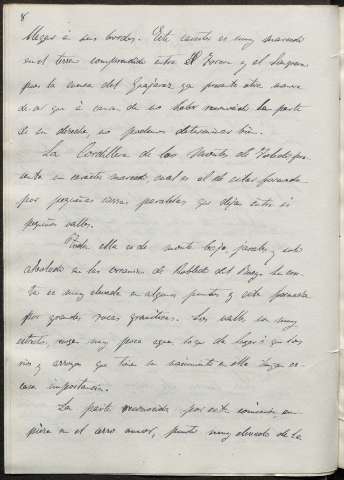 8
llegar a sus bordes. Este caracter es muy marcado
en el terreno comprendido entre El Torcon y el
pues la cuenca del Guajaraz ya presenta otra
de ser que á causa de no haber reconocido la parte
de su derecha, no podemos determinar bien.
La Cordillera de los Montes de Toledo pre-
senta un caracter marcado cual es el de estar formada
por pequeñas sierras paralelas que dejan entre si
pequeños valles.
Toda ella es de monte bajo, jarales, y solo
en las cercanias de Robledo del Su cres-
ta es muy elevada en algunos puntos y está formada
por grandes rocas graníticas. Los valles son muy
estrechos, muy poca agua, lo que da lugar á que los
rios y arroyos que tienen su nacimiento en ella tengan es-
casa importancia.
La parte reconocida por esta comision em-
pieza en el cerro punto muy elevado de la